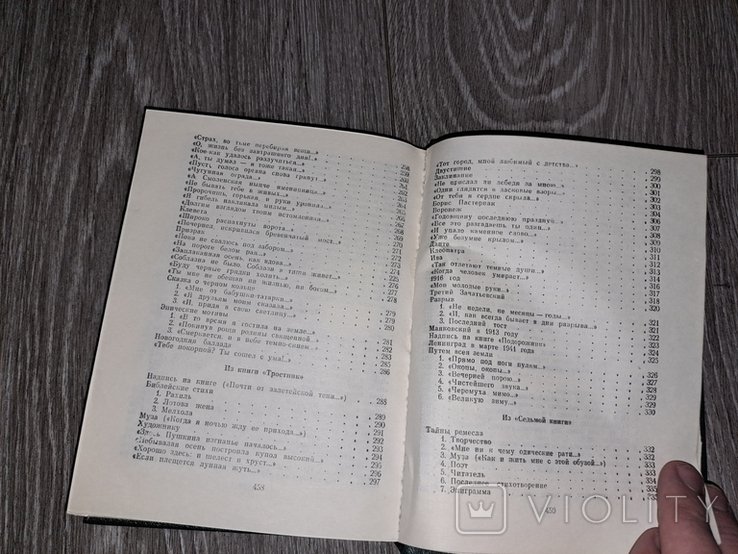 «Страх, во тьме перебирая вещи...»
«О, жизнь без завтрашнего дня!..
«Кое-как удалось разлучиться...»
«А, ты думал — я тоже такая...»
«Пусть голоса органа снова грянут...»
«Чугунная ограда...»
«А Смоленская нынче именинница...»
«Не бывать тебе в живых...»
«Пророчишь, горькая, и руки уронила...»
«Я гибель накликала милым...»
«Долгим взглядом твоим истомленная...»
Клевета
«Широко распахнуты ворота...»
«Почернел, искривился бревенчатый мост...»
Призрак
«Пока не свалюсь под забором...»
«На пороге белом рая...»
«Заплаканная осень, как вдова...»
«Соблазна не было. Соблазн в тиши живет...» 275
«Буду черные грядки холить...» 276
«Ты мне не обещан ни жизнью, ни богом...» 277
Сказка о черном кольце 278
1. «Мне от бабушки-татарки...»
2. «Я друзьям моим сказала...»
3. «И, придя в свою светлицу...»
Эпические мотивы 280
1. «В то время я гостила на земле...» 281
2. «Покинув рощи родины священной...» 282
3. «Смеркается, и в небе темно-синем...» 283
Новогодняя баллада 284
«Тебе покорной? Ты сошел с ума!.. 285
286
Из книги «Тростник»
Надпись на книге («Почти от залетейской тени...») 288
Библейские стихи
1. Рахиль 289
2. Лотова жена 290
3. Мелхола 291
Муза («Когда я ночью жду ее прихода...») 292
Художнику 293
«Здесь Пушкина изгнанье началось...» 294
«Небывалая осень построила купол высокий...» 295
«Хорошо здесь: и шелест и хруст...» 296
«Если плещется лунная жуть...» 297
458
«Тот город, мной любимый с детства...» 298
Двустишие 299
Заклинание 300
«Не прислал ли лебедя за мною...» 301
«Одни глядятся в ласковые взоры...» 302
«От тебя я сердце скрыла...» 303
Борис Пастернак
Воронеж
«Годовщину последнюю празднуй...» 307
«Все это разгадаешь ты один...» 308
«И упало каменное слово...» 309
«Уже безумие крылом...» 310
Данте 311
Клеопатра 312
Ива 313
«Так отлетают темные души...» 314
«Когда человек умирает...» 315
1916 год 316
«Мои молодые руки...» 317
Третий Зачатьевский 318
Разрыв 320
1. «Не недели, не месяцы — годы...»
2. «И, как всегда бывает в дни разрыва...» 321
3. Последний тост 321
Маяковский в 1913 году 322
Надпись на книге «Подорожник» 323
Ленинград в марте 1941 года 324
Путем всея земли 325
1. «Прямо под ноги пулям...»
2. «Окопы, окопы...» 326
3. «Вечерней порою...» 327
4. «Чистейшего звука... 328
5. «Черемуха мимо... 329
6. «Великую зиму...» 330
Из «Седьмой книги»
Тайны ремесла
1. Творчество 332
2. «Мне ни к чему одические рати...» 332
3. Муза («Как и жить мне с этой обузой...») 333
4. Поэт
5. Читатель
6. Последнее стихотворение
7. Эпиграмма
459
VIOLITY